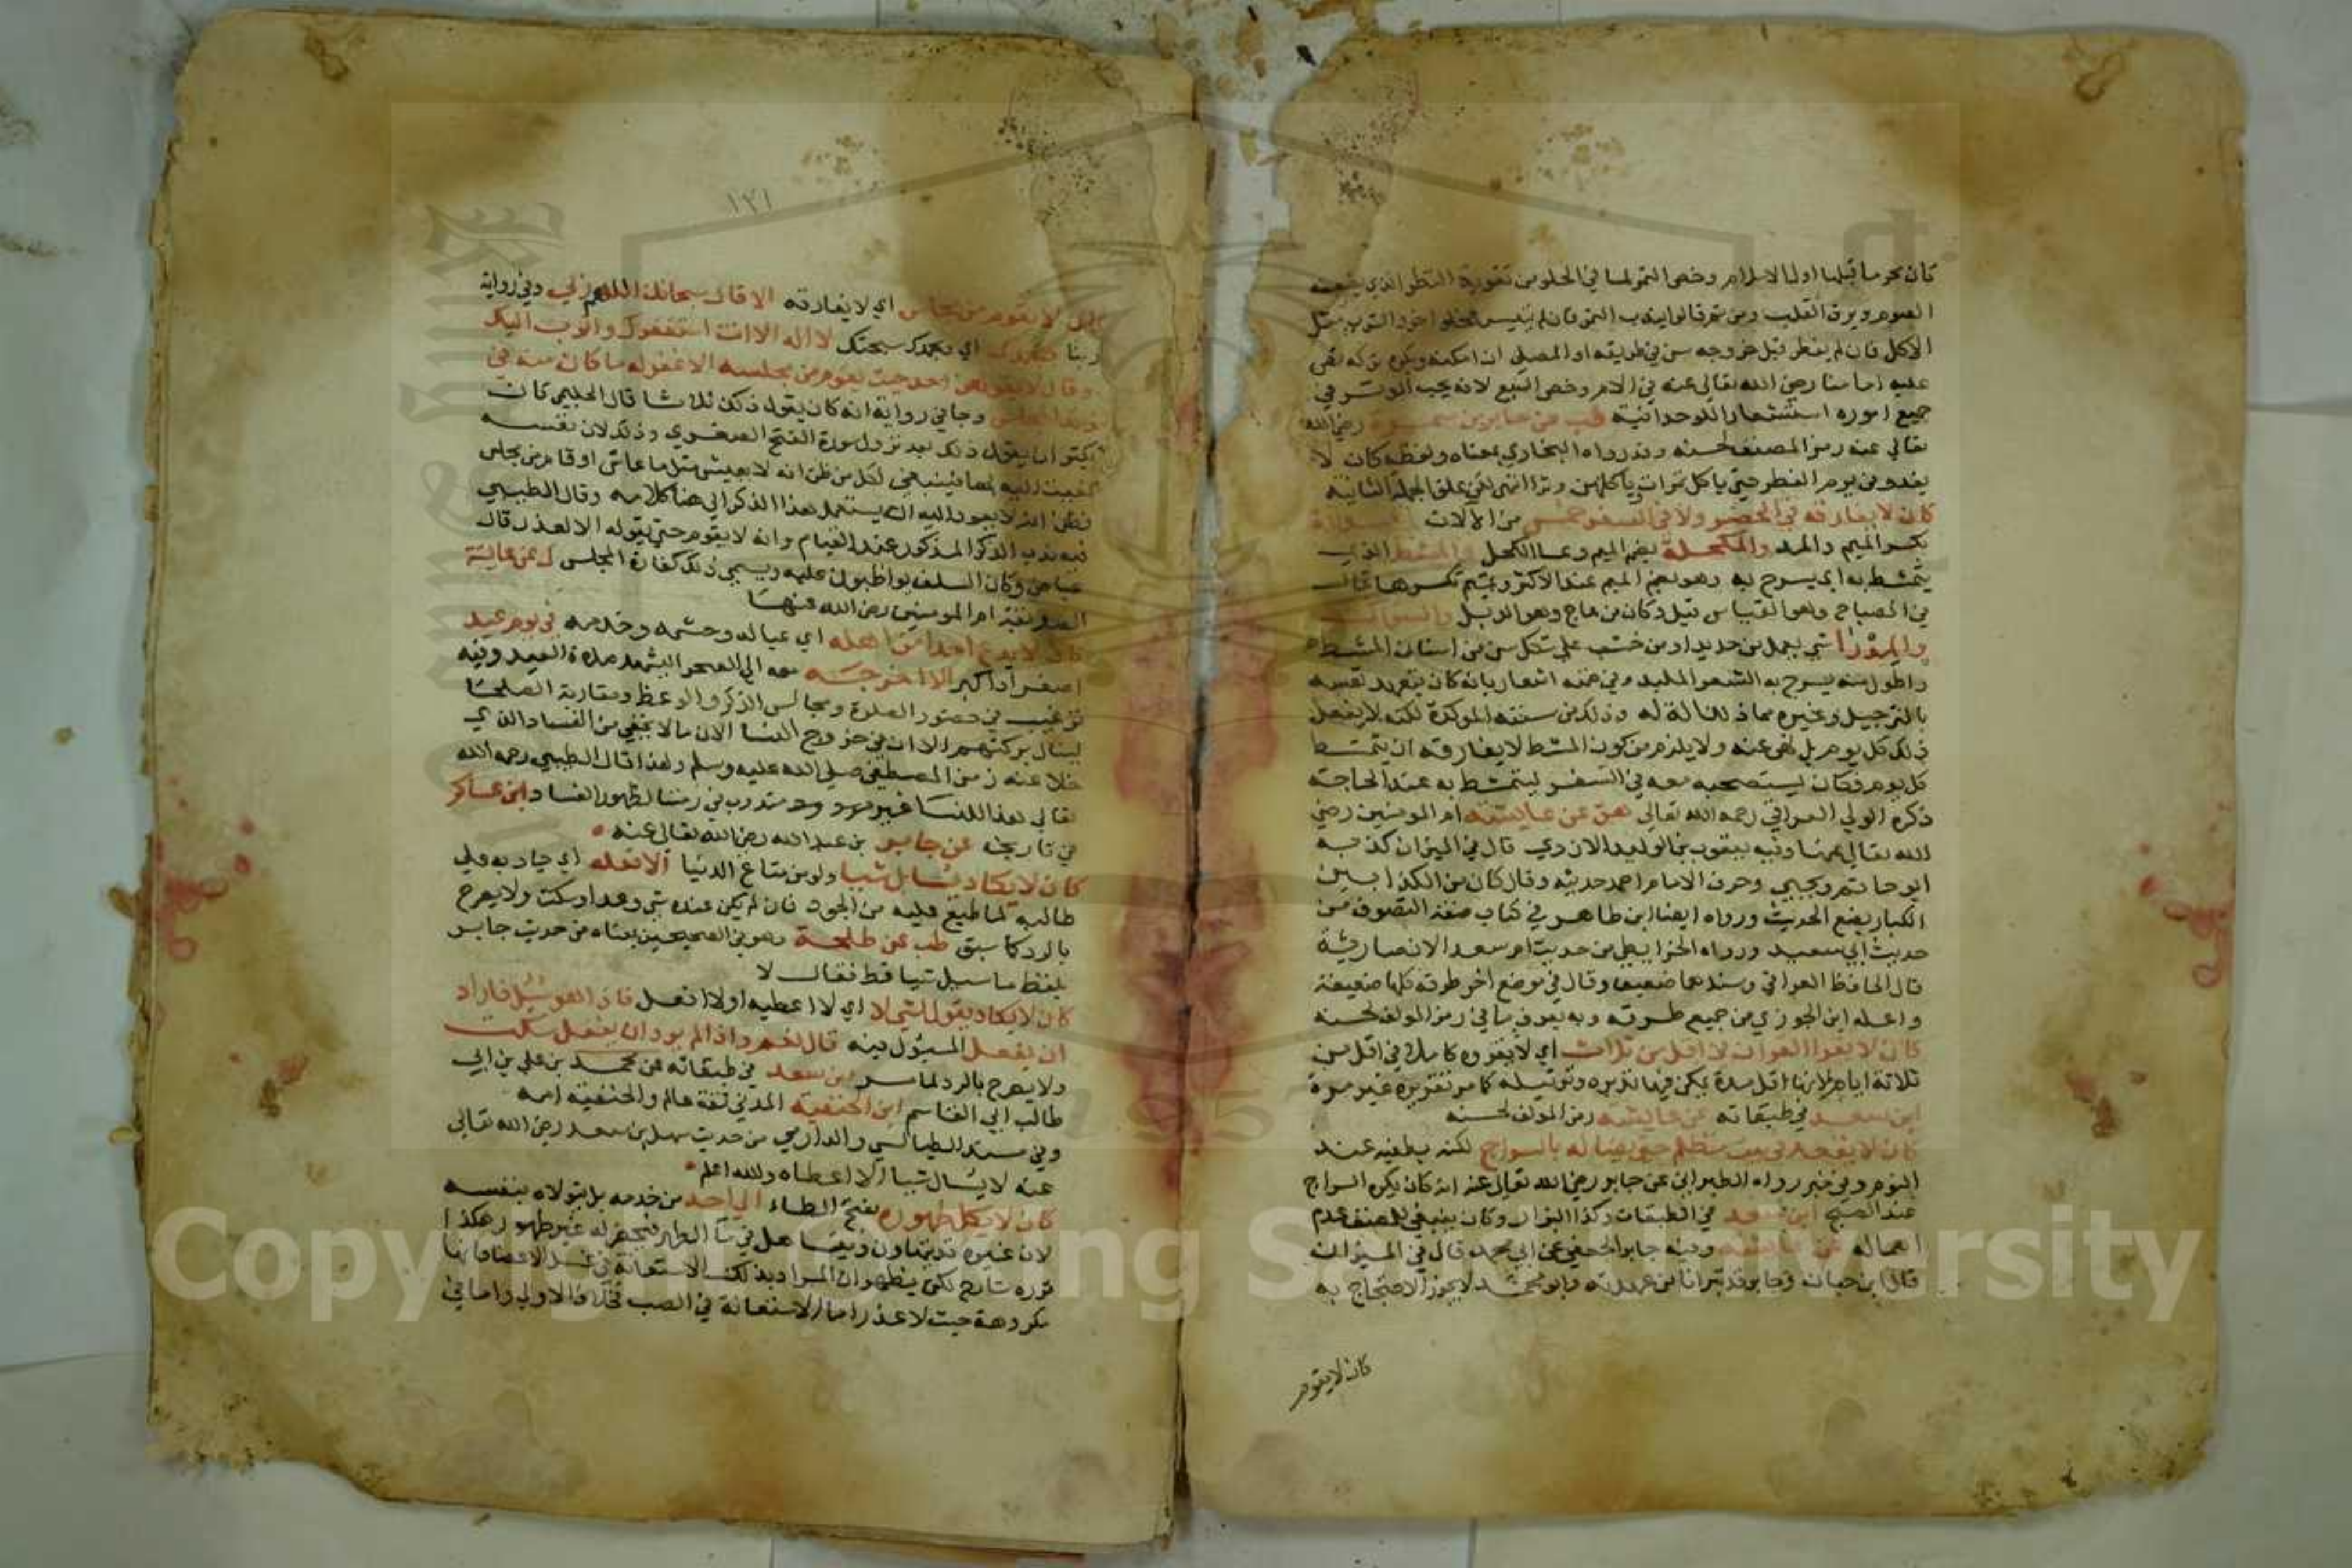 كان محرما قبلها اول الاسلام وخص التمر لما في الحلو من تقوية النظر الذي يضعفه
الصوم ويرق القلب ومن ثم قالوا يندب التمر فان لم يتيسر فحلو اخر والشرب مثل
الاكل فان لم يفطر قبل خروجه سن في طريقه او المصلى ان امكنه ويكره تركه نص
عليه امامنا رضي الله تعالى عنه في الام وخص السبع لانه يحب الوتر في
جميع اموره استشعارا للوحدانية طب عن جابر بن سمرة رضي الله
تعالى عنه رمز المصنف لحسنه وقد رواه البخاري بمعناه ولفظه كان لا
يغدو من يوم الفطر حتى ياكل تمرات وياكلهن وترا انتهى لكن علق الجملة الثانية
كان لا يفارقه في الحضر ولا في السفر خمس من الالات
بكسر الميم والمد والمكحلة بضم الميم وعا الكحل والمشط الذي
يتمشط به اي يسرح به وهو بضم الميم عند الاكثر وتميم تكسرها قال
في المصباح وهو القياس قيل وكان من عاج وهو الذبل والسواك
والمدرا شي يعمل من حديد او من خشب على شكل سن من اسنان المشط
واطول منه يسرح به الشعر الملبد وفي ضمنه اشعار بانه كان يتعهد نفسه
بالترجيل وغيره مما ذلك الة له وذلك من سننه الموكدة لكنه لا يفعل
ذلك كل يوم بل نهى عنه ولا يلزم من كون المشط لا يفارقه ان يتمشط
كل يوم فكان يستصحبه معه في السفر ليتمشط به عند الحاجة
ذكره الولي العراقي رحمه الله تعالى عق عن عايشة ام المومنين رضي
الله تعالى عنها وفيه يعقوب بن الوليد الازدي قال في الميزان كذبه
ابو حاتم ويحيى وحرق الامام احمد حديثه وقال كان من الكذابين
الكبار يضع الحديث ورواه ايضا ابن طاهر في كتاب صفة التصوف من
حديث ابي سعيد ورواه الخرايطي من حديث ام سعد الانصارية
قال الحافظ العراقي وسندهما ضعيف وقال في موضع اخر طرقه كلها ضعيفة
واعله ابن الجوزي من جميع طرقه وبه يعرف ما في رمز المولف لحسنه
كان لا يقرا القران في اقل من ثلاث اي لا يقروه كاملا في اقل من
ثلاثة ايام لانها اقل مدة يمكن فيها تدبره وترتيله كما مر تقريره غير مرة
ابن سعد في طبقاته عن عايشة رمز المولف لحسنه
كان لا يقعد في بيت مظلم حتى يضا له بالسراج لكنه يطفيه عند
النوم وفي خبر رواه الطبراني عن جابر رضي الله تعالى عنه انه كان يكره السراج
عند الصبح ابن سعد في الطبقات وكذا البزار وكان ينبغي للمصنف عدم
اهماله عن عايشة وفيه جابر الجعفي عن ابي محمد قال في الميزان
قال ابن حبان وجابر قد تبرانا من عهدته وابو محمد لا يجوز الاحتجاج به
كان لا يقوم
١٢١
كان لا يقوم من مجلس اي لا يفارقه الا قال سبحانك اللهم ربي وفي رواية
ربنا وبحمدك اي وبحمدك سبحتك لا اله الا انت استغفرك واتوب اليك
وقال لا يقولهن احد حيث يقوم من مجلسه الا غفر له ما كان منه في
ذلك المجلس وجا في رواية انه كان يقول ذلك ثلاثا قال الحليمي كان
يكثر ان يقول ذلك بعد نزول سورة الفتح الصغرى وذلك لان نفسه
نعيت اليه بها فينبغي لكل من ظن انه لا يعيش مثل ما عاش او قام من مجلس
فظن انه لا يعود اليه ان يستعمل هذا الذكر الى هنا كلامه وقال الطيبي
فيه ندب الذكر المذكور عند القيام وانه لا يقوم حتى يقوله الا لعذر قال
عياض وكان السلف يواظبون عليه ويسمى ذلك كفارة المجلس ك عن عايشة
الصديقة ام المومنين رضي الله عنها
كان لا يدع احدا من اهله اي عياله وحشمه وخدمه في يوم عيد
اصغر او اكبر الا اخرجه معه الى الصحرا ليشهد صلاة العيد وفيه
ترغيب في حضور الصلاة ومجالس الذكر والوعظ ومقاربة الصلحا
لينال بركتهم الا ان في خروج النسا الان ما لا يخفى من الفساد الذي
خلا عنه زمن المصطفى صلى الله عليه وسلم ولهذا قال الطيبي رحمه الله
تعالى هذا للنسا غير مندوب في زمننا لظهور الفساد ابن عساكر
في تاريخه عن جابر بن عبد الله رضي الله تعالى عنه
كان لا يكاد يسال شيا ولو من متاع الدنيا الا فعله اي جاد به على
طالبه لما طبع عليه من الجود فان لم يكن عنده شي وعد او سكت ولا يصرح
بالرد كما سبق طب عن طلحة وهو في الصحيحين بمعناه من حديث جابر
بلفظ ما سيل شيا قط فقال لا
كان لا يكاد يقول لشي لا اي لا اعطيه او لا افعل فاذا هو سيل فاراد
ان يفعل المسوول فيه قال نعم واذا لم يرد ان يفعل سكت
ولا يصرح بالرد لما مر ابن سعد في طبقاته عن محمد بن علي بن ابي
طالب ابي القاسم ابن الحنفية المدني ثقة عالم والحنفية امه
وفي مسند الطيالسي والدارمي من حديث سهل بن سعد رضي الله تعالى
عنه لا يسال شيا الا اعطاه والله اعلم
كان لا يكل طهوره بفتح الطاء الى احد من خدمه بل يتولاه بنفسه
لان غيره قد يتهاون ويتساهل في ما الطهر فيحضر له غير طهور هكذا
قرره شارح لكن يظهر ان المراد بذلك الاستعانة في غسل الاعضا فانها
مكروهة حيث لا عذر اما الاستعانة في الصب فخلاف الاولى واما في
Copyright King Saud University
1957